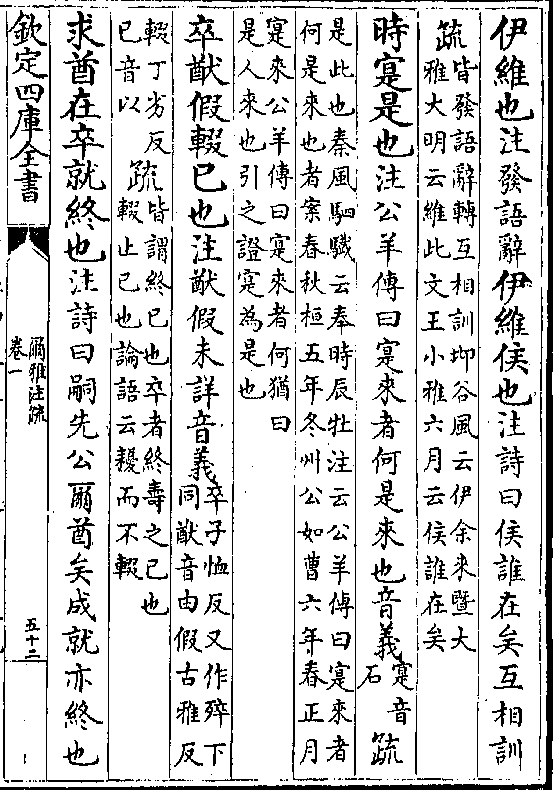 伊維也注發語辭伊維侯也注詩曰侯誰在矣互相訓
疏皆發語辭轉互相訓邶谷風云伊余來曁大
雅大明云維此文王小雅六月云侯誰在矣
時寔是也注公羊傳曰寔來者何是來也音義寔音
石疏
是此也秦風駟驖云奉時辰牡注云公羊傳曰寔來者
何是來也者案春秋桓五年冬州公如曹六年春正月
寔來公羊傳曰寔來者何猶曰
是人來也引之證寔為是也
卒猷假輟已也注猷假未詳音義卒子恤反又作殌下
同猷音由假古雅反
輟丁劣反疏皆謂終已也卒者終壽之已也
已音以輟止已也論語云耰而不輟
求酋在卒就終也注詩曰嗣先公爾酋矣成就亦終也
欽定四庫全書
爾雅注疏
卷一
五十二